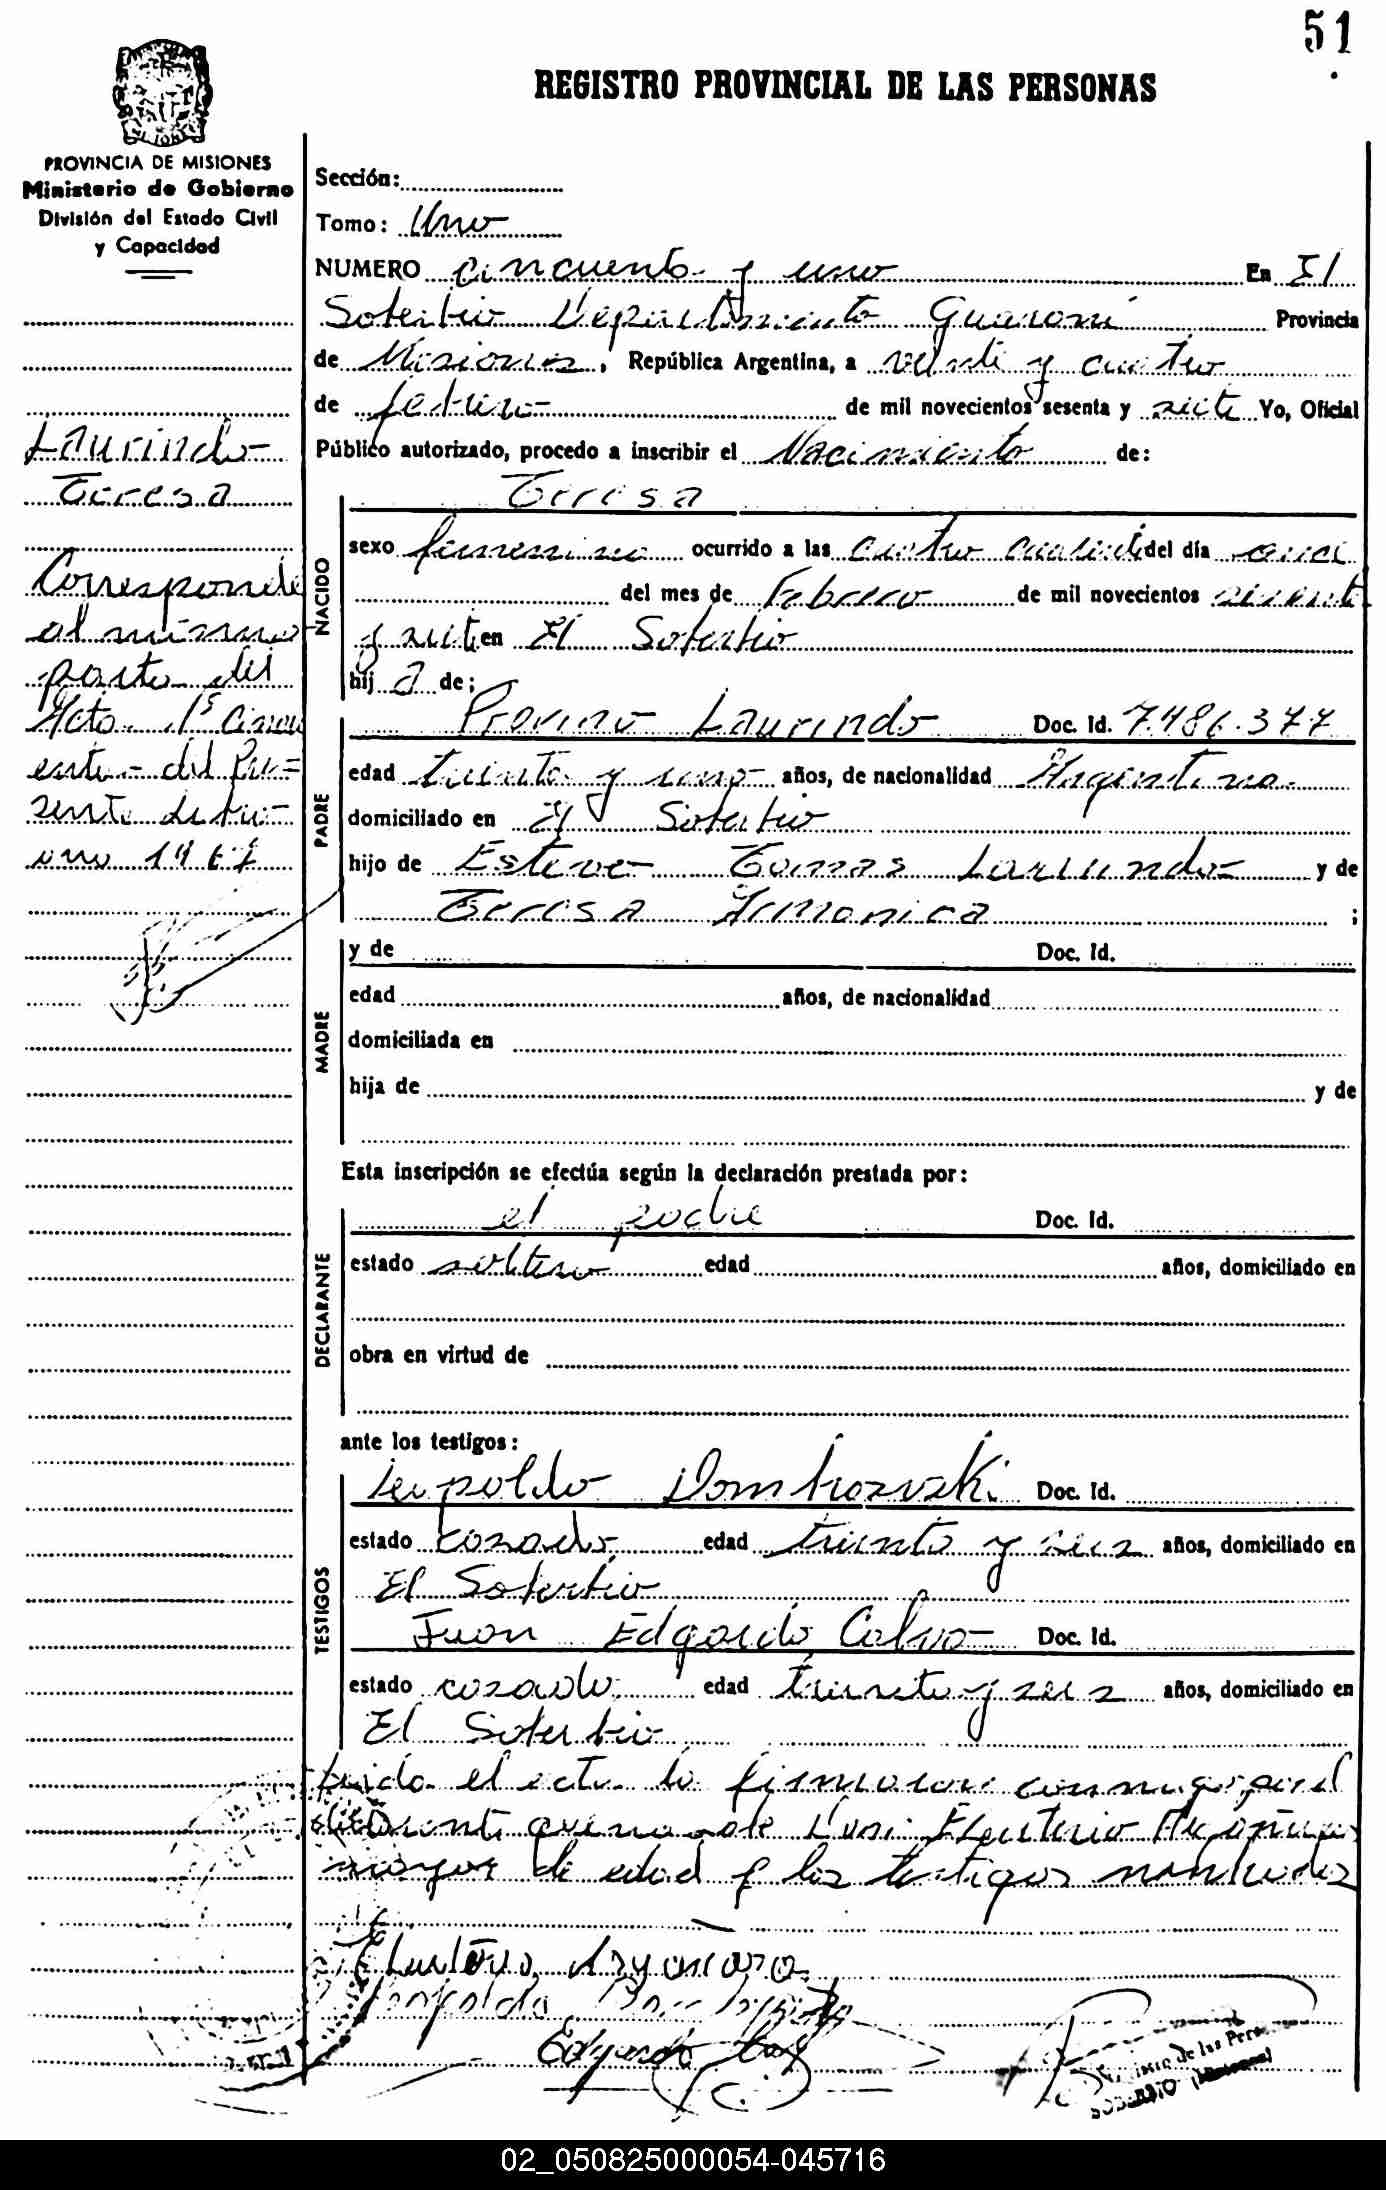 51
REGISTRO PROVINCIAL DE LAS PERSONAS
PROVINCIA DE MISIONES
Ministerio de Gobierno
División del Estado Civil
y Capacidad
Laurindo
Teresa
Corresponde
al mismo
parto del
Acta
del Pre=
sente
uno 1967
Sección:
Tomo: Uno
NUMERO cincuenta y uno En El
Soberbio Departamento Guarani Provincia
de Misiones, República Argentina, a veinte y cuatro
de febrero de mil novecientos sesenta y siete Yo, Oficial
Público autorizado, procedo a inscribir el Nacimiento de:
NACIDO
Teresa
sexo femenino ocurrido a las cuatro del día
del mes de Febrero de mil novecientos sesenta
y siete en El Soberbio
hij a de;
PADRE
Laurindo Doc. Id. 7.486.377
edad treinta y uno años, de nacionalidad Argentina
domiciliado en El Soberbio
hijo de Esteve Tomas y de
Teresa ;
MADRE
y de Doc. Id.
edad años, de nacionalidad
domiciliada en
hija de y de
Esta inscripción se efectúa según la declaración prestada por:
DECLARANTE
el padre Doc. Id.
estado soltero edad años, domiciliado en
obra en virtud de
ante los testigos:
TESTIGOS
Leopoldo Dombrowski Doc. Id.
estado casado edad treinta y seis años, domiciliado en
El Soberbio
Juan Edgardo Calvo Doc. Id.
estado casado edad treinta y seis años, domiciliado en
El Soberbio
Leida el acta la firmaron conmigo por el
declarante que no sabe Don Eleuterio
mayor de edad y los testigos nombrados
Leopoldo
Edgardo
de las Pers
SOBERBIO (Misiones)
02_050825000054-045716